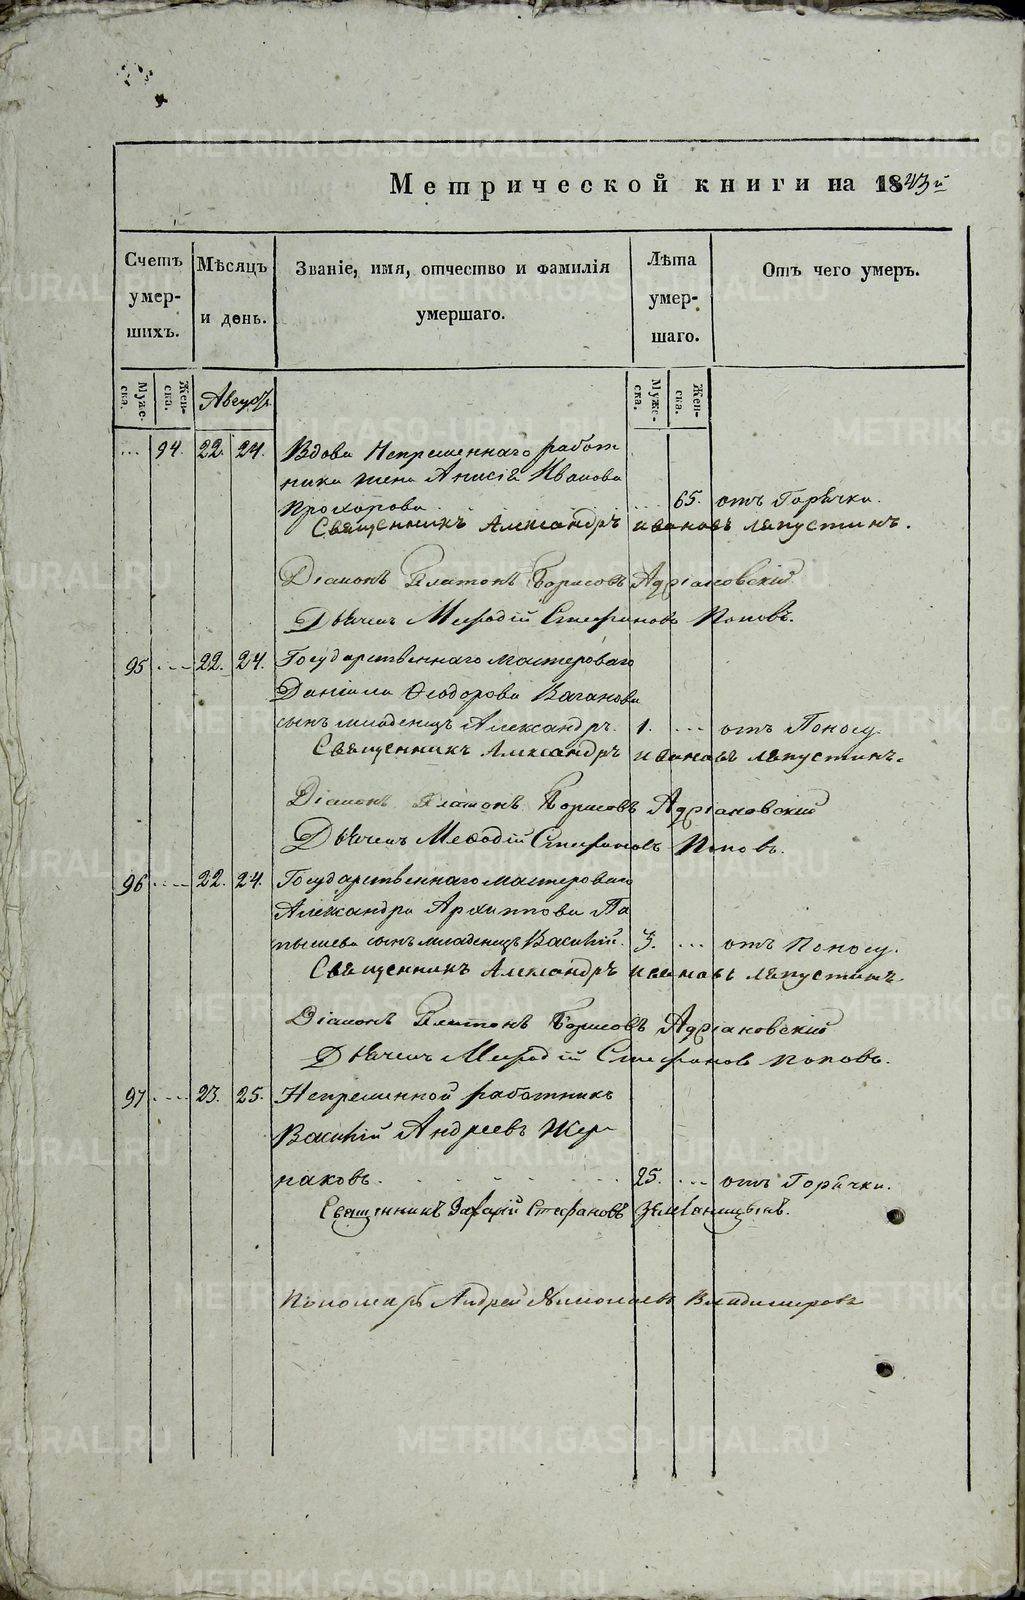 Метрической книги на 1843й
Счетъ умер-шихъ.
Мѣсяцъ и день.
Званіе, имя, отчество и фамилія умершаго.
Лѣта умер-шаго.
Отъ чего умеръ.
Муже-ска. Жен-ска. Августъ Муже-ска. Жен-ска.
... 94. 22. 24. Вдова Непременнаго работ
ника жена Анисія Иванова
Прохорова 65. отъ Горячки.
Священникъ Александръ Ивановъ Ляпустинъ.
Діаконъ Платонъ Борисовъ Адріановскій
Дьячекъ Мефодій Стефановъ Поповъ.
95 ... 22. 24. Государственнаго мастероваго
Даніила Ѳеодорова Ваганова
сынъ младенецъ Александръ. 1. ... отъ Поносу.
Священникъ Александръ Ивановъ Ляпустинъ.
Діаконъ Платонъ Борисовъ Адріановскій
Дьячекъ Меѳодій Стефановъ Поповъ.
96 ... 22. 24. Государственнаго мастероваго
Александра Архиппова Па
тышева сынъ младенецъ Василій. ... отъ Поносу.
Священникъ Александръ Ивановъ Ляпустинъ.
Діаконъ Платонъ Борисовъ Адріановскій
Дьячекъ Мефодій Стефановъ Поповъ.
97 ... 23. 25. Непременной работникъ
Василій Андреевъ Жер
наковъ. 25. ... отъ Горячки.
Священникъ Стефановъ
Пономарь Андрей Владимировъ
METRIKI.GASO-URAL.RU